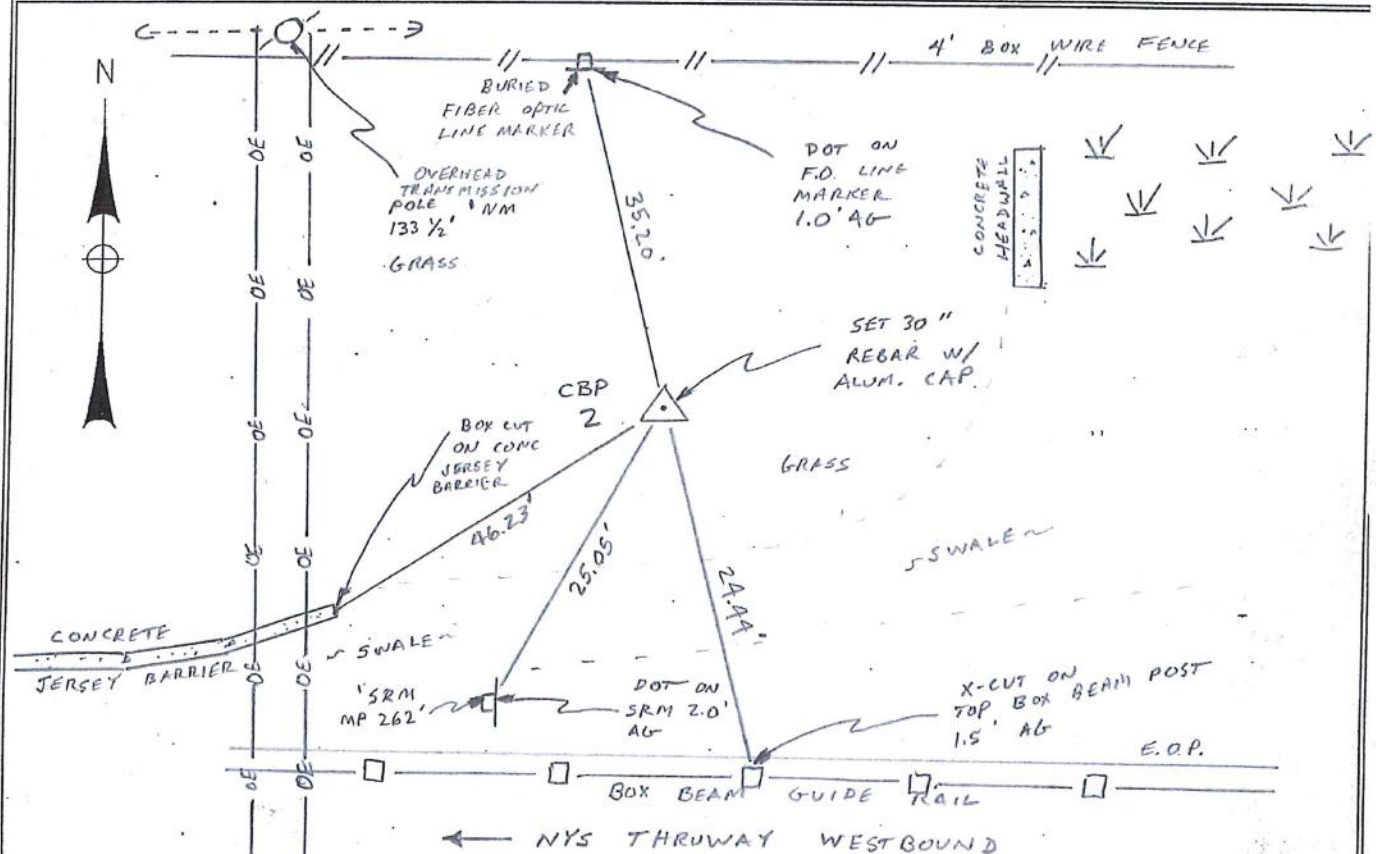 4' BOX WIRE FENCE
N
BURIED
FIBER OPTIC
LINE MARKER
OVERHEAD
TRANSMISSION
POLE 'NM
133 ½'
GRASS
DOT ON
F.O. LINE
MARKER
1.0' AG
CONCRETE
HEADWALL
35.20'
OE OE
OE OE
OE OE
OE OE
OE OE
OE OE
SET 30"
REBAR W/
ALUM. CAP.
CBP
2
BOX CUT
ON CONC
JERSEY
BARRIER
GRASS
46.23'
25.05'
24.44'
SWALE
CONCRETE
JERSEY BARRIER
SWALE
'SRM
MP 262'
DOT ON
SRM 2.0'
AG
X-CUT ON
TOP BOX BEAM POST
1.5' AG
E.O.P.
BOX BEAM GUIDE RAIL
NYS THRUWAY WESTBOUND